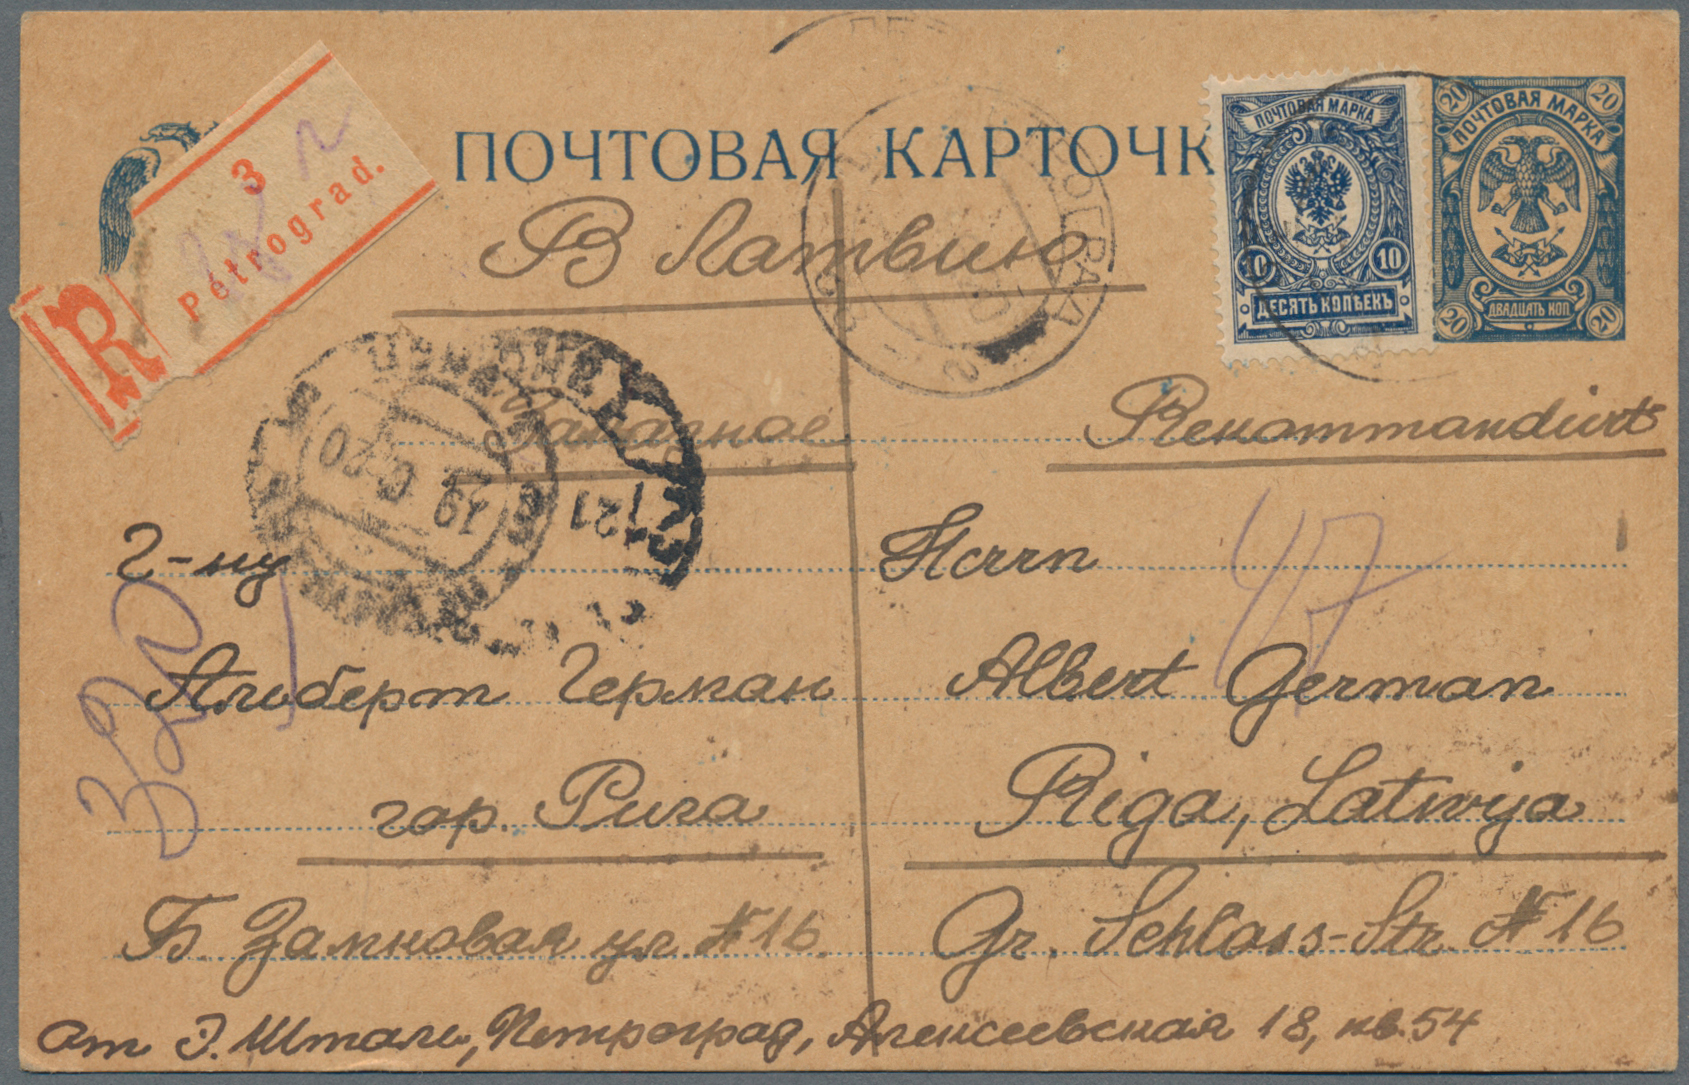 ПОЧТОВАЯ КАРТОЧК
3
Pétrograd.
R
ПОЧТОВАЯ МАРКА
10 10
ДЕСЯТЬ КОПѢЕКЪ
20 20
ПОЧТОВАЯ МАРКА
ДВАДЦАТЬ КОП
20 20
В Латвию
Заказное
Rekommandirt
Г-ну
Альберт Герман
гор. Рига
Б. Замковая ул #16
Herrn
Albert German
Riga, Latwija
Gr. Schloss-Str. #16
От Э. Шталь, Петроград, Алексеевская 18, кв. 54
19 20
121